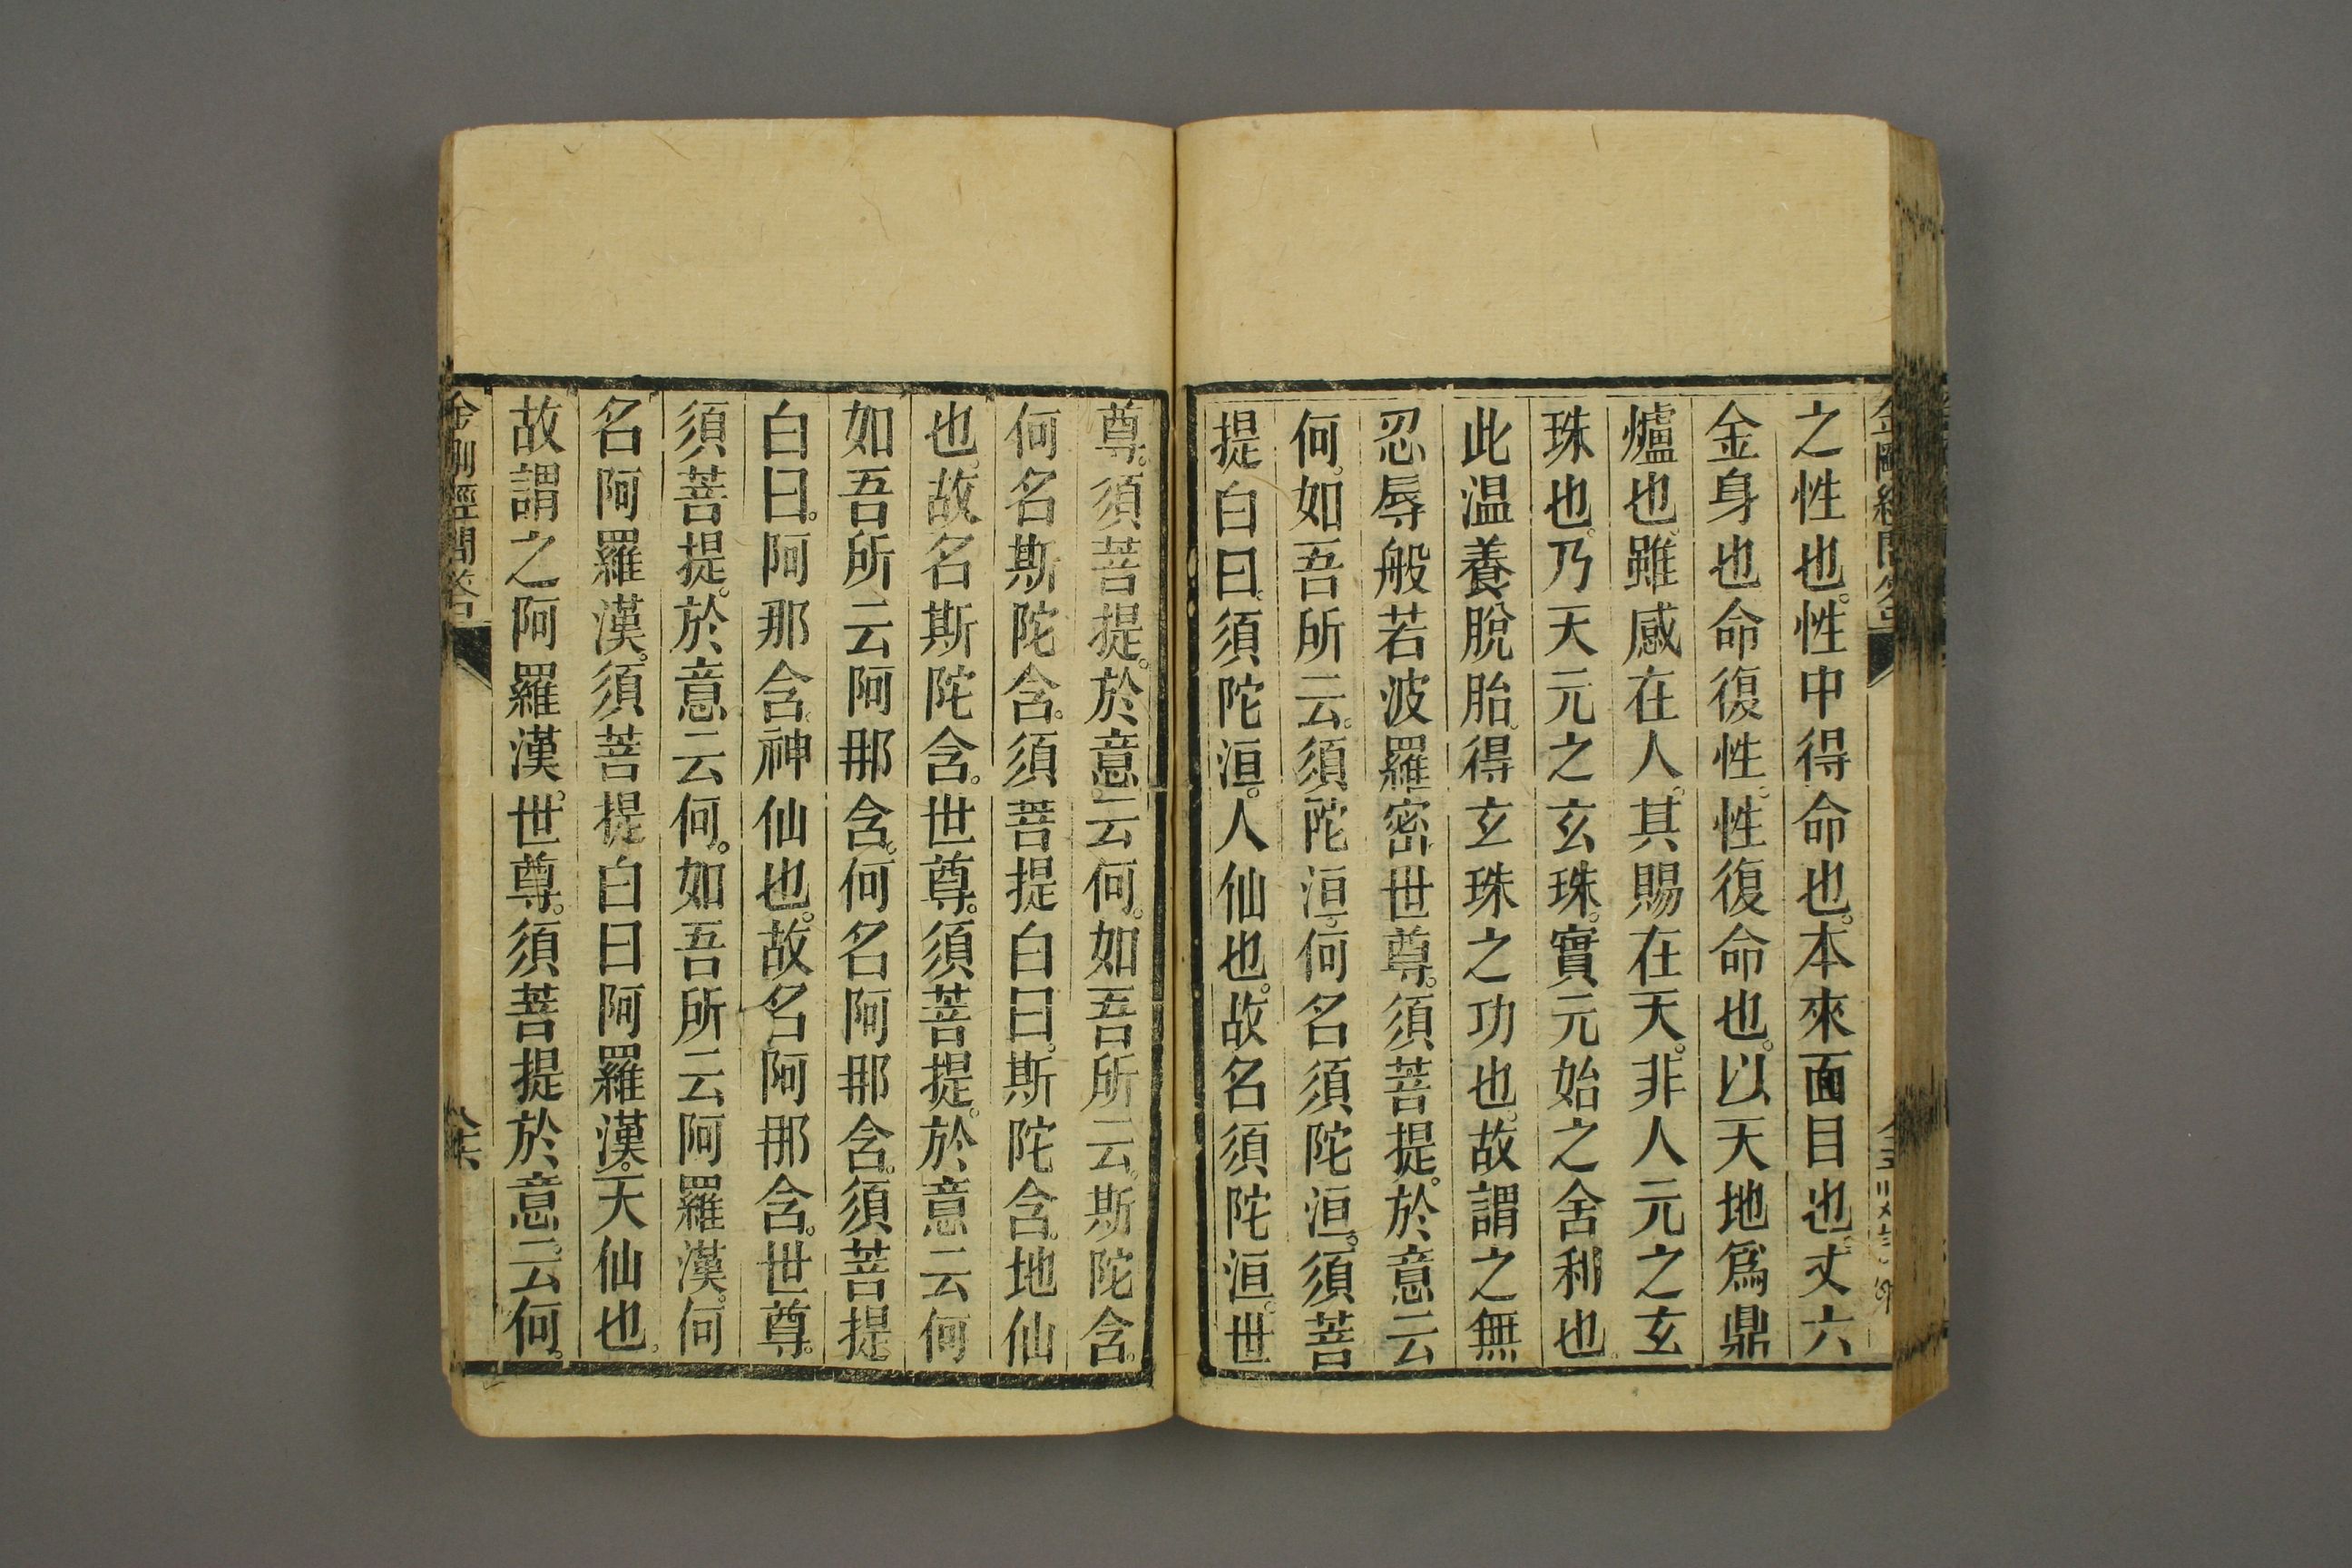 之性也。性中得命也。本來面目也。丈六
金身也命復性。性復命也。以天地爲鼎
爐也。雖感在人。其賜在天。非人元之玄
珠也。乃天元之玄珠。實元始之舍利也。
此温養脫胎。得玄珠之功也。故謂之無
忍辱般若波羅密世尊。須菩提。於意云
何。如吾所云。須陀洹。何名須陀洹。須菩
提白曰。須陀洹。人仙也。故名須陀洹。世
尊。須菩提。於意。云何。如吾所云。斯陀含。
何名斯陀含。須菩提白曰。斯陀含。地仙
也。故名斯陀含。世尊。須菩提。於意云何
如吾所云阿那含。何名阿那含。須菩提
白曰。阿那含。神仙也。故名阿那含。世尊。
須菩提。於意云何。如吾所云阿羅漢。何
名阿羅漢。須菩提白曰阿羅漢。天仙也。
故謂之阿羅漢。世尊。須菩提於意云何。
金剛經問答